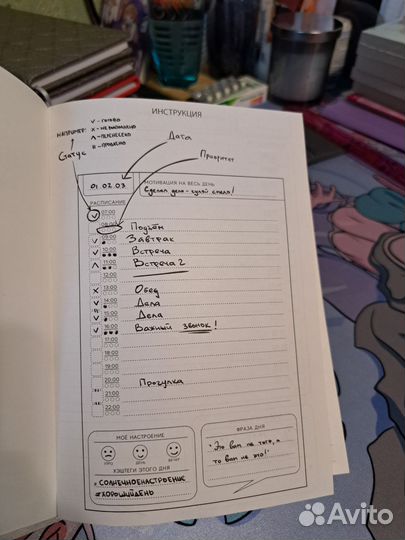 ИНСТРУКЦИЯ
НАПРИМЕР:
V - ГОТОВО
X - НЕ ВЫПОЛНЕНО
Λ - ПЕРЕНЕСЕНО
Статус
Дата
Приоритет
01.02.03
МОТИВАЦИЯ НА ВЕСЬ ДЕНЬ
Сделал дело - гуляй смело!
РАСПИСАНИЕ
V 07:00
08:00 Подъём
V 09:00 Завтрак
V 10:00 Встреча
Λ 11:00 Встреча 2
12:00
X 13:00 Обед
V 14:00 Дела
V 15:00 Дела
V 16:00 Важный звонок!
17:00
18:00
19:00
20:00 Прогулка
21:00
22:00
МОЁ НАСТРОЕНИЕ
УТРО ДЕНЬ ВЕЧЕР
ХЭШТЕГИ ЭТОГО ДНЯ
#СОЛНЕЧНОЕНАСТРОЕНИЕ
#ХОРОШИЙДЕНЬ
ФРАЗА ДНЯ
"Это вам не того, а
то вам не это!"
Avito